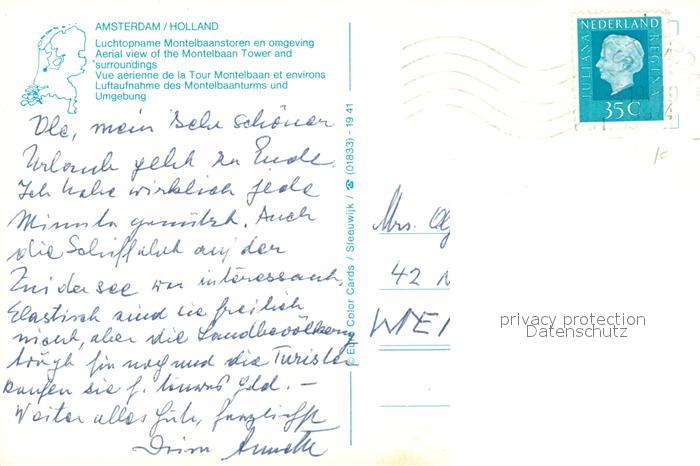 AMSTERDAM / HOLLAND
Luchtopname Montelbaanstoren en omgeving
Aerial view of the Montelbaan Tower and
surroundings
Vue aérienne de la Tour Montelbaan et environs
Luftaufnahme des Montelbaanturms und
Umgebung
mein sehr schöner
Urlaub geht zu Ende.
Ich habe wirklich jede
Minute genützt. Auch
die Schiffahrt auf der
Zuidersee war interessant.
Elastisch sind sie freilich
nicht, aber die Landbevölkerung
trägt sie noch und die Turisten
kaufen sie f. teures Geld. —
Weiter alles Gute, herzlichst
Annette
Color Cards / Sleeuwijk / ☎ (01833) - 19 41
NEDERLAND
JULIANA REGINA
35 C
Mrs.
42
WEI
privacy protection
Datenschutz